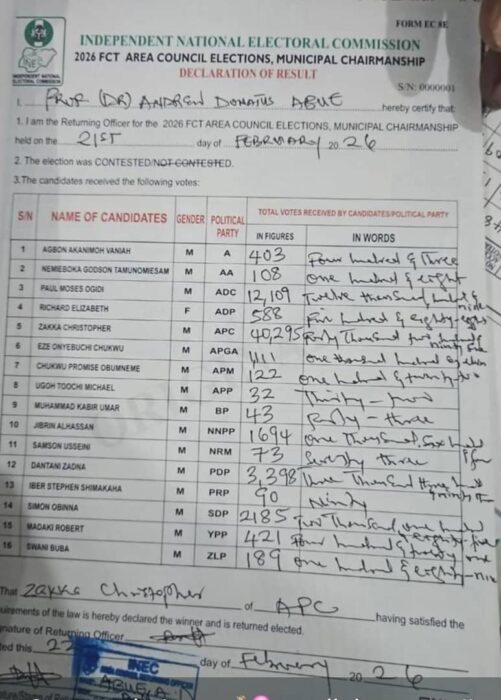 FORM EC 8E
INEC
INDEPENDENT NATIONAL ELECTORAL COMMISSION
INDEPENDENT NATIONAL ELECTORAL COMMISSION
2026 FCT AREA COUNCIL ELECTIONS, MUNICIPAL CHAIRMANSHIP
DECLARATION OF RESULT
S/N: 0000001
I, PROF (DR) ANDREW DONATUS ABUE hereby certify that:
1. I am the Returning Officer for the 2026 FCT AREA COUNCIL ELECTIONS, MUNICIPAL CHAIRMANSHIP
held on the 21ST day of FEBRUARY 2026
2. The election was CONTESTED/NOT CONTESTED.
3.The candidates received the following votes:
S/N NAME OF CANDIDATES GENDER POLITICAL PARTY TOTAL VOTES RECEIVED BY CANDIDATES/POLITICAL PARTY
IN FIGURES IN WORDS
1 AGBON AKANIMOH VANIAH M A 403 Four hundred & Three
2 NEMIEBOKA GODSON TAMUNOMIESAM M AA 108 One hundred & eight
3 PAUL MOSES OGIDI M ADC 12,109 Twelve thousand, hundred & nine
4 RICHARD ELIZABETH F ADP 588 Five hundred & eighty-eight
5 ZAKKA CHRISTOPHER M APC 40,295 Forty Thousand two hundred & ninety five
6 EZE ONYEBUCHI CHUKWU M APGA 1,111 one thousand hundred eleven
7 CHUKWU PROMISE OBUMNEME M APM 122 one hundred & twenty-two
8 UGOH TOOCHI MICHAEL M APP 32 Thirty-two
9 MUHAMMAD KABIR UMAR M BP 43 Forty-three
10 JIBRIN ALHASSAN M NNPP 1694 One Thousand Six hund
11 SAMSON USSEINI M NRM 73 Seventy three
12 DANTANI ZADNA M PDP 3,398 Three Thousand three hund & ninety
13 IBER STEPHEN SHIMAKAHA M PRP 90 Ninety
14 SIMON OBINNA M SDP 2185 Two Thousand, one hundred & eighty-five
15 MADAKI ROBERT M YPP 421 Four hundred & twenty one
16 SWANI BUBA M ZLP 189 one hundred & eighty-nine
That Zakka Christopher of APC having satisfied the
uirements of the law is hereby declared the winner and is returned elected.
nature of Returning Officer
ted this 22 day of February 2026
INEC
ABUJA